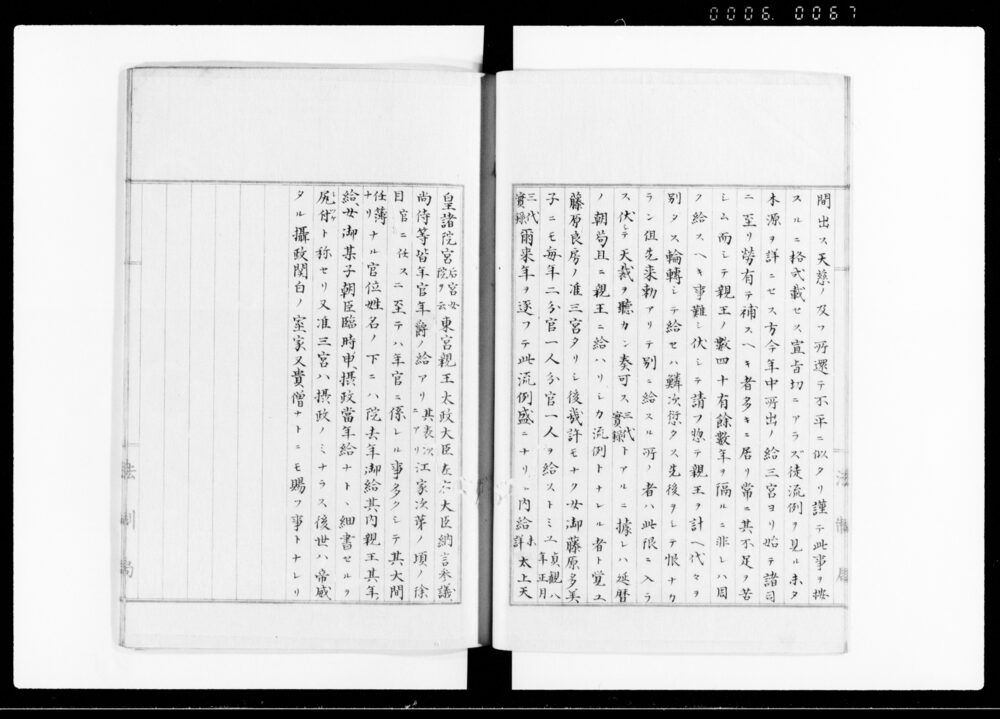 0006. 0067
間出ス天慈ノ及フ所還テ不平ニ似タリ謹テ此事ヲ按
スルニ格式載セス宣旨切ニアラズ徒流例ヲ見ル未タ
本源ヲ詳ニセス方今年中所出ノ給三宮ヨリ始テ諸司
ニ至リ労有テ補スヘキ者多キニ居リ常ニ其不足ヲ苦
シム而シテ親王ノ数四十有餘数年ヲ隔ルニ非レハ因
ヲ給スヘキ事難シ伏シテ請フ惣テ親王ヲ計ヘ代々ヲ
別タス輪轉シテ給セハ鱗次愆タス先後ヲシテ恨ナカ
ラン但先来勅アリテ別ニ給スル所ノ者ハ此限ニ入ラ
ス伏シテ天裁ヲ聽カン奏可ス三代實録トアルニ據レハ延暦
ノ朝局且ニ親王ニ給ハリシカ流例トナレル者ト覚ユ
藤原良房ノ准三宮タリシ後幾許モナク女御藤原多美
子ニモ毎年二分官一人分官一人ヲ給ストミユ貞観八年正月
三代實録爾来年ヲ逐フテ此流例盛ニナリ内給未詳太上天
皇諸院宮后宮女院ヲ云東宮親王太政大臣左右大臣納言参議
尚侍等皆年官年爵ノ給アリ其表次ニアリ江家次第ノ頃ノ除
目官ニ任スニ至テハ年官ニ係レル事多クシテ其大間
任薄ナリナル官位姓名ノ下ニハ院去年御給其内親王其年
給女御某子朝臣臨時申攝政當年給ナト、細書セルヲ
尻付ト称セリ又准三宮ハ攝政ノミナラス後世ハ帝戚
タル攝政関白ノ室家又貴僧ナトニモ賜フ事トナレリ
法制局